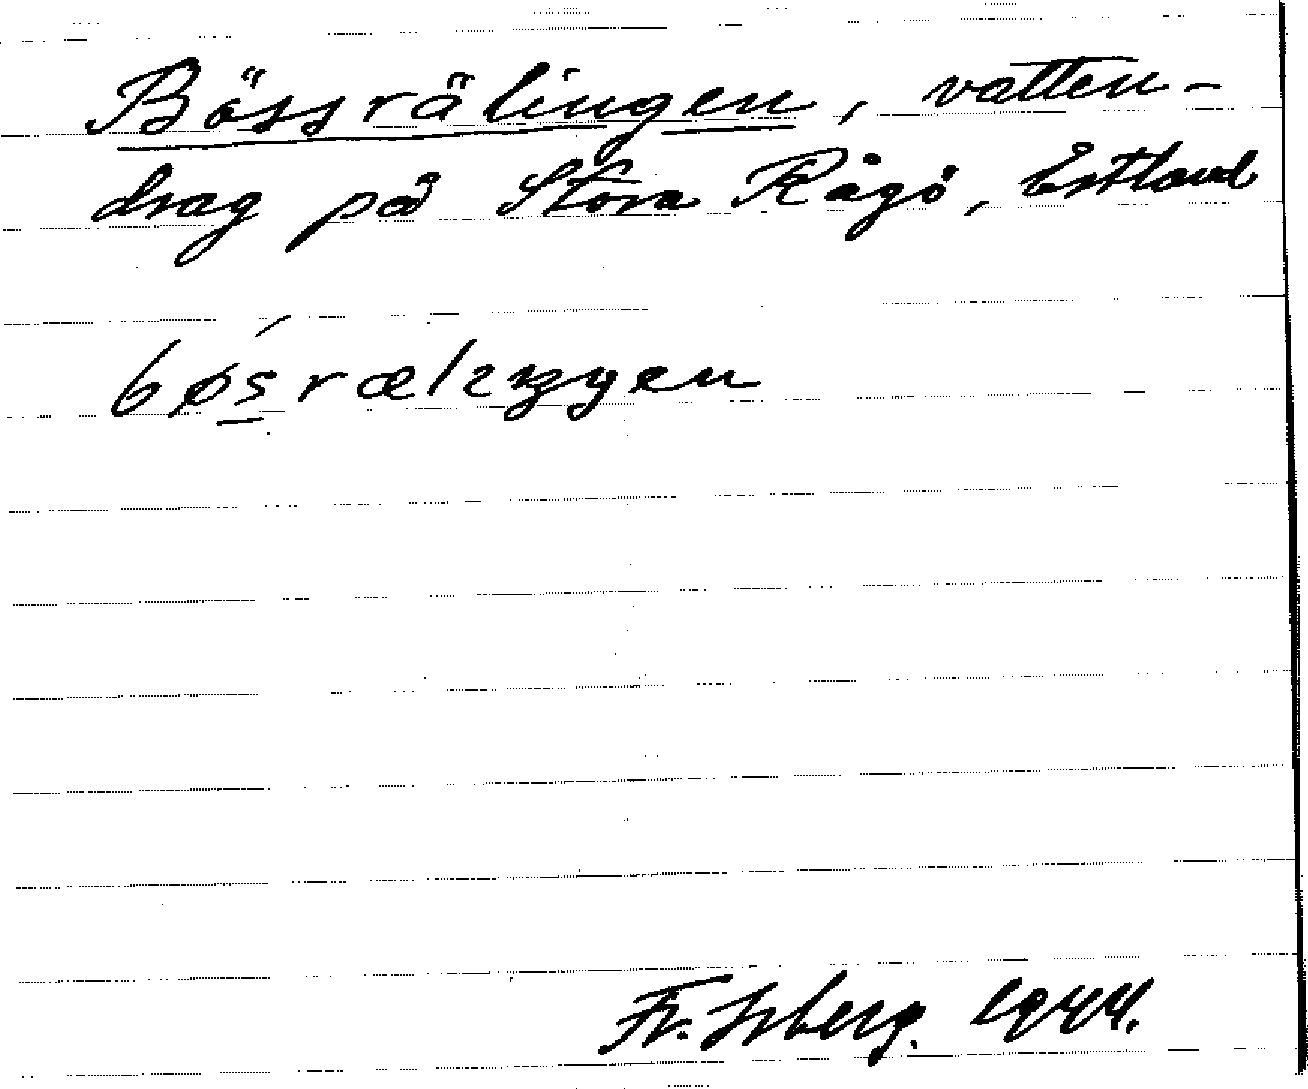 Bössrälingen, vatten-
drag på Stora Rågö, Estland
bøsrælıŋgen
Fr. Isberg. 1944.